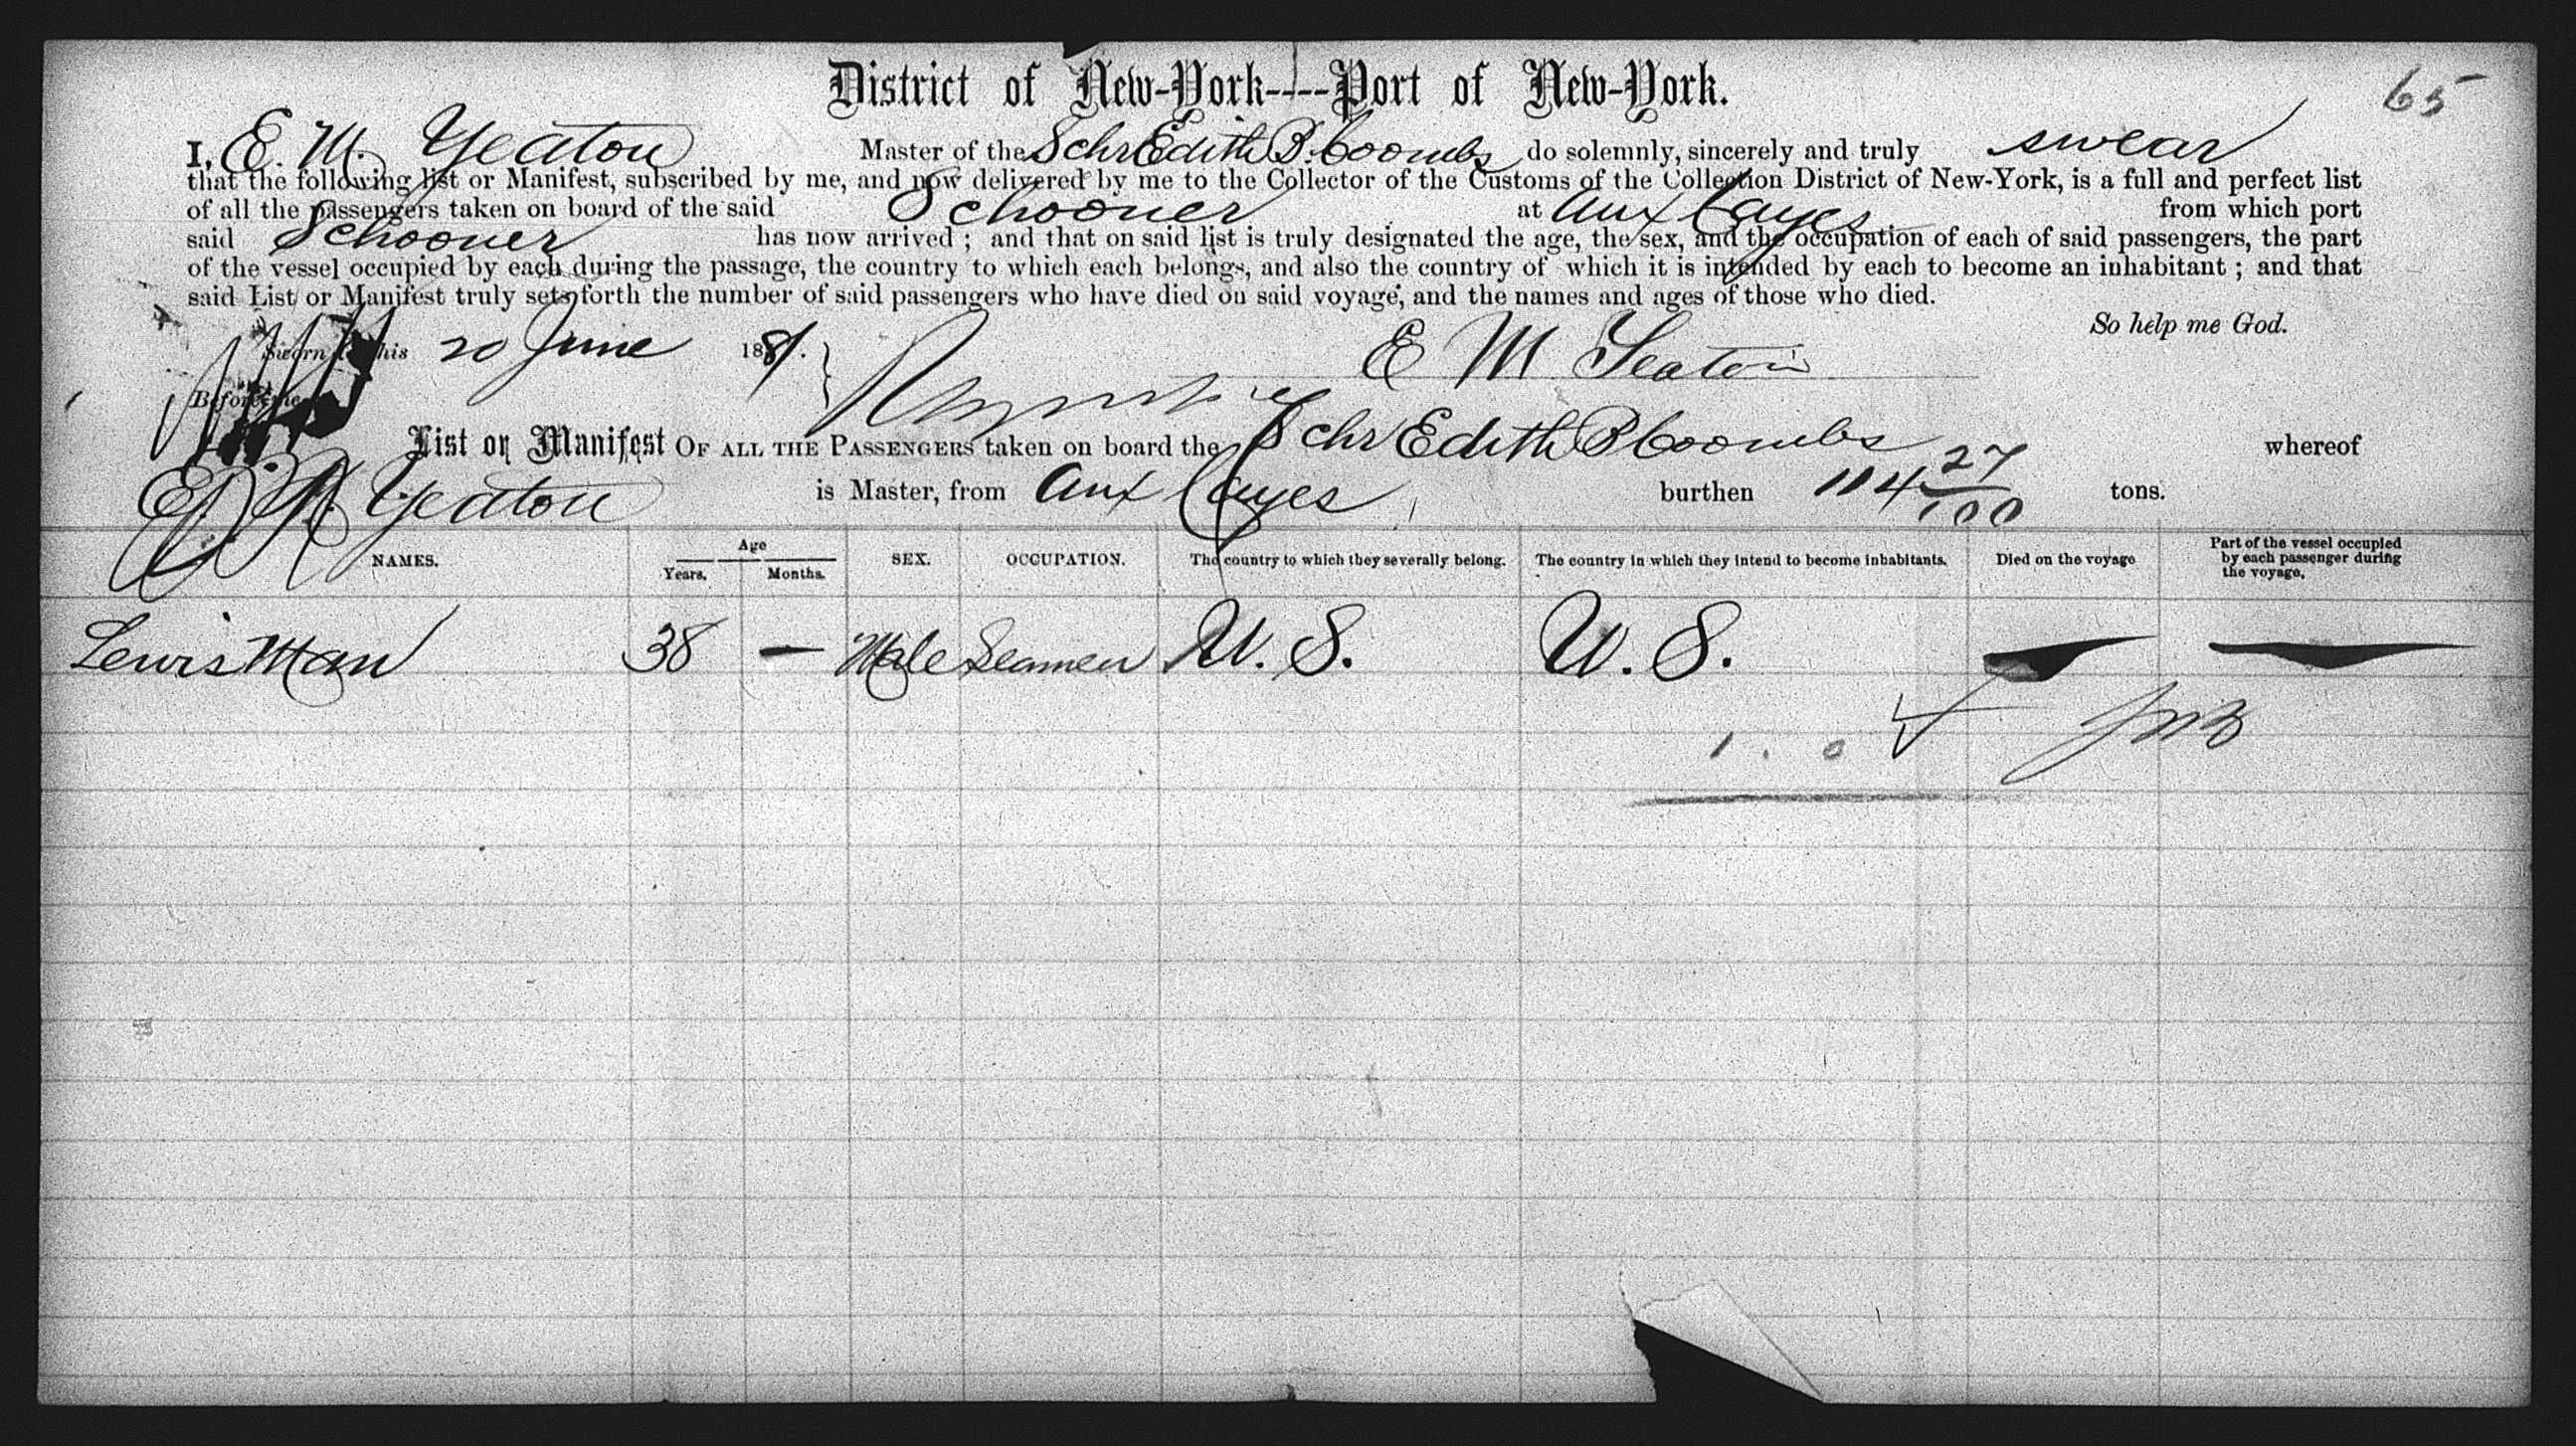 District of New-York----Port of New-York.
65
I, E. M. Yeaton Master of the Schr Edith B. Coombs do solemnly, sincerely and truly swear
that the following list or Manifest, subscribed by me, and now delivered by me to the Collector of the Customs of the Collection District of New-York, is a full and perfect list
of all the passengers taken on board of the said Schooner at Aux Cayes from which port
said Schooner has now arrived ; and that on said list is truly designated the age, the sex, and the occupation of each of said passengers, the part
of the vessel occupied by each during the passage, the country to which each belongs, and also the country of which it is intended by each to become an inhabitant ; and that
said List or Manifest truly sets forth the number of said passengers who have died on said voyage, and the names and ages of those who died.
So help me God.
Sworn to this 20 June 1881.
E M Yeaton
Before me
List or Manifest OF ALL THE PASSENGERS taken on board the Schr Edith B Coombs whereof
E. M. Yeaton is Master, from Aux Cayes burthen 114 27/100 tons.
NAMES. Age Years. Months. SEX. OCCUPATION. The country to which they severally belong. The country in which they intend to become inhabitants. Died on the voyage Part of the vessel occupied by each passenger during the voyage.
Lewis Man 38 — Male Seamen U. S. U. S. — —
1 . 0